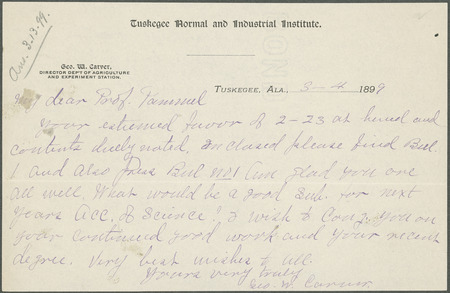 Tuskegee Normal and Industrial Institute.
Ans. 3.13.99.
Geo. W. Carver,
DIRECTOR DEP'T OF AGRICULTURE
AND EXPERIMENT STATION.
Tuskegee, Ala., 3-4 1899
My dear Prof. Pammel
Your esteemed favor of 2-23 at hand and
contents duely noted. Enclosed please find Bul.
1 and also Press Bul No1 Am glad you are
all well. What would be a good Sub. for next
years Acc. of Science? I wish to Cong. you on
your continued good work and your recent
degree. Very best wishes to all.
Yours very truly
Geo. W. Carver